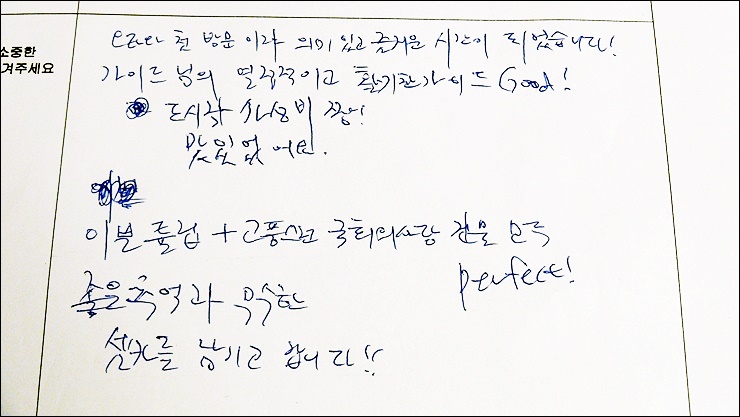 소중한
겨주세요
첫 방문이라 의미 있고 즐거운 시간이 되었습니다!
가이드님의 열정적이고 활기찬 가이드 Good!
도시락 가성비 짱!
맛있었어요.
이불 튤립 + 고풍스런 국회의사당 건물 모두
perfect!
좋은 추억과 무수한
셀카를 남기고 갑니다!!